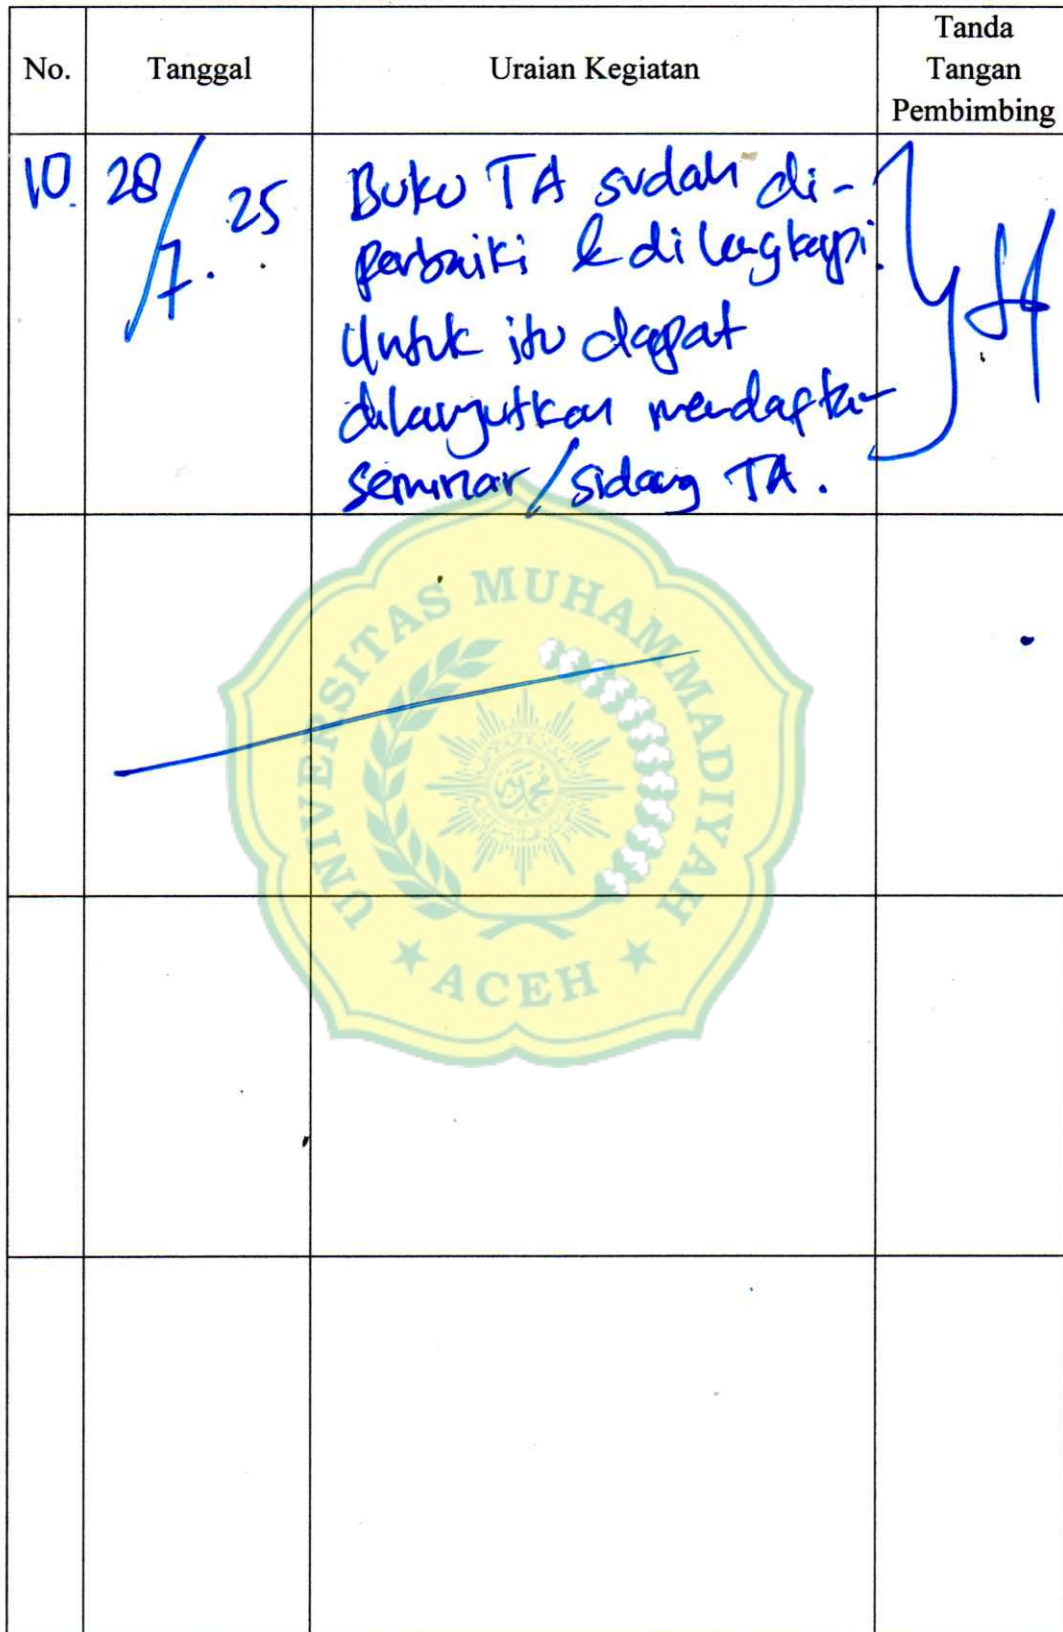 No.
Tanggal
Uraian Kegiatan
Tanda
Tangan
Pembimbing
10.
28/7.25
Buku TA sudah di-
perbaiki & dilengkapi.
Untuk itu dapat
dilanjutkan mendaftar
seminar/sidang TA.
UNIVERSITAS MUHAMMADIYAH
ACEH